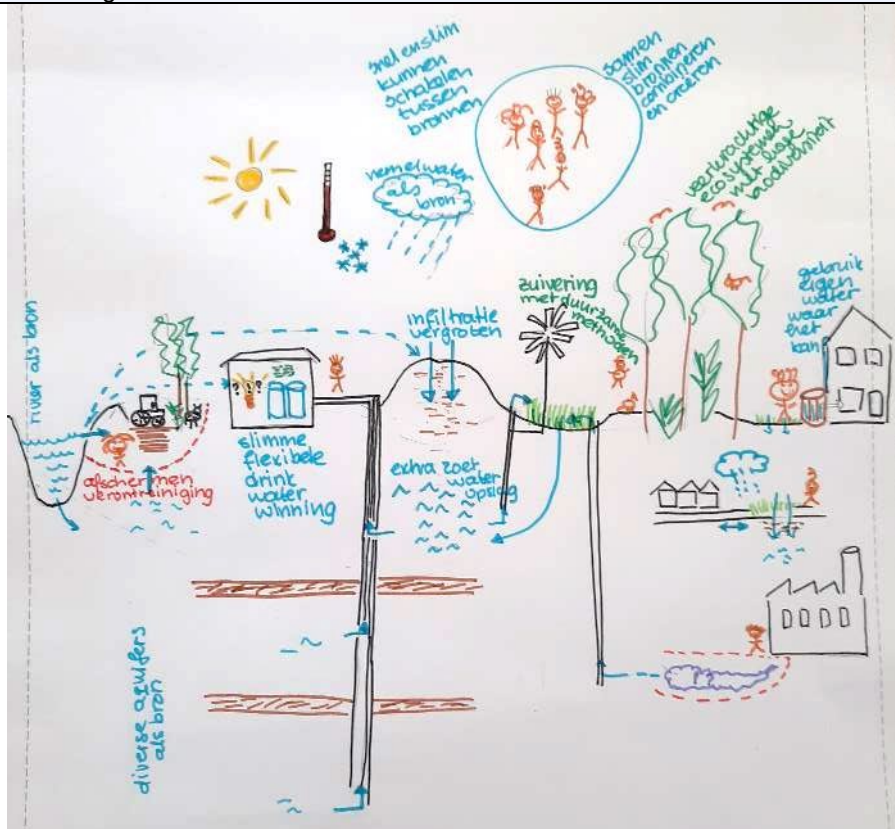 snel en slim
kunnen
schakelen
tussen
bronnen
samen
slim
bronnen
combineren
en creëren
hemelwater
als
bron
veerkrachtige
ecosystemen
met hoge
biodiversiteit
zuivering
met duurzame
methoden
gebruik
eigen
water
waar
het
kan
infiltratie
vergroten
rivier als bron
? ? ? ?
afschermen
verontreiniging
slimme
flexibele
drink
water
winning
extra zoet
water
opslag
diverse aquifers
als bron